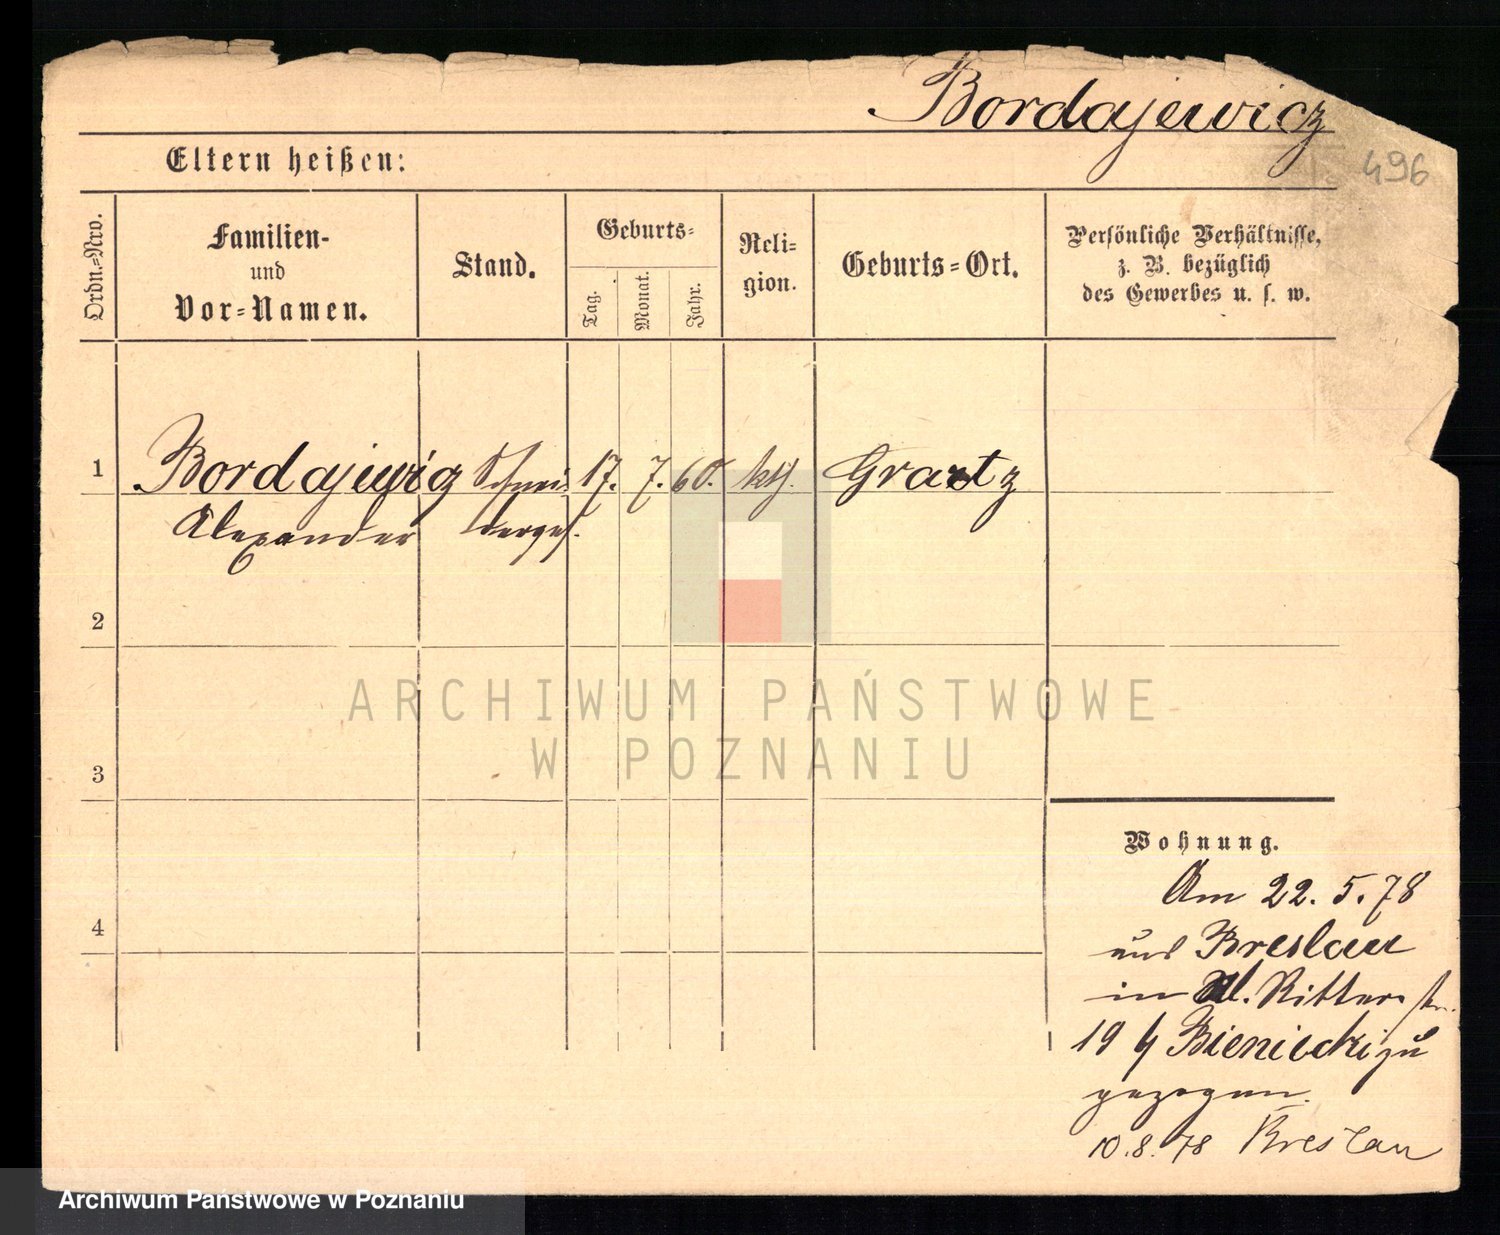 Bordajewicz
496
Eltern heißen:
Ordn.-Nro.
Familien-
und
Vor-Namen.
Stand.
Geburts-
Tag.
Monat.
Jahr.
Reli-
gion.
Geburts-Ort.
Persönliche Verhältnisse,
z. B. bezüglich
des Gewerbes u. s. w.
1 Bordajewicz Schnei- 17. 7. 60. kth. Graetz
Alexander derges.
2
3
4
ARCHIWUM PAŃSTWOWE
W POZNANIU
Wohnung.
Am 22. 5. 78
aus Breslau
in Kl. Ritterstr.
19 b/ Bieniecki zu
gezogen.
10.8.78 Breslau
Archiwum Państwowe w Poznaniu